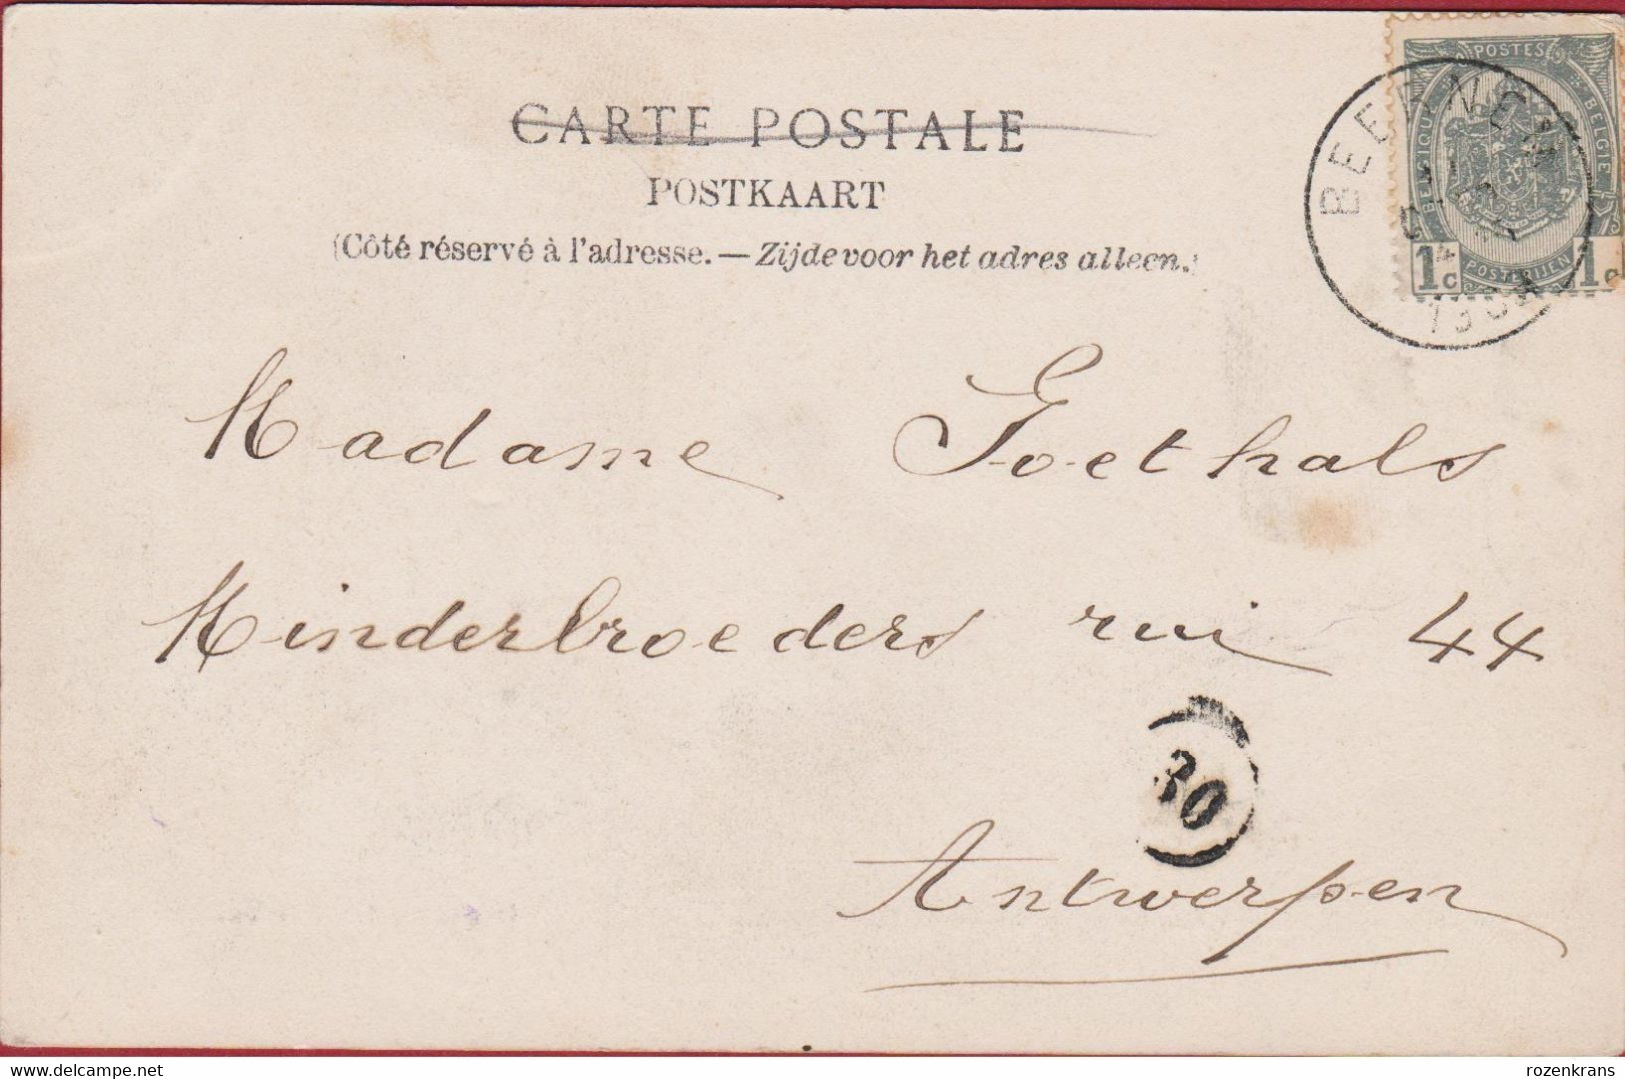 CARTE POSTALE
POSTKAART
(Côté réservé à l'adresse. — Zijde voor het adres alleen.)
POSTES
BELGIQUE BELGIE
1c POSTERIJEN 1c
BEERNEM
Madame Goethals
Minderbroeders rui 44
30
Antwerpen
delcampe.net
rozenkrans